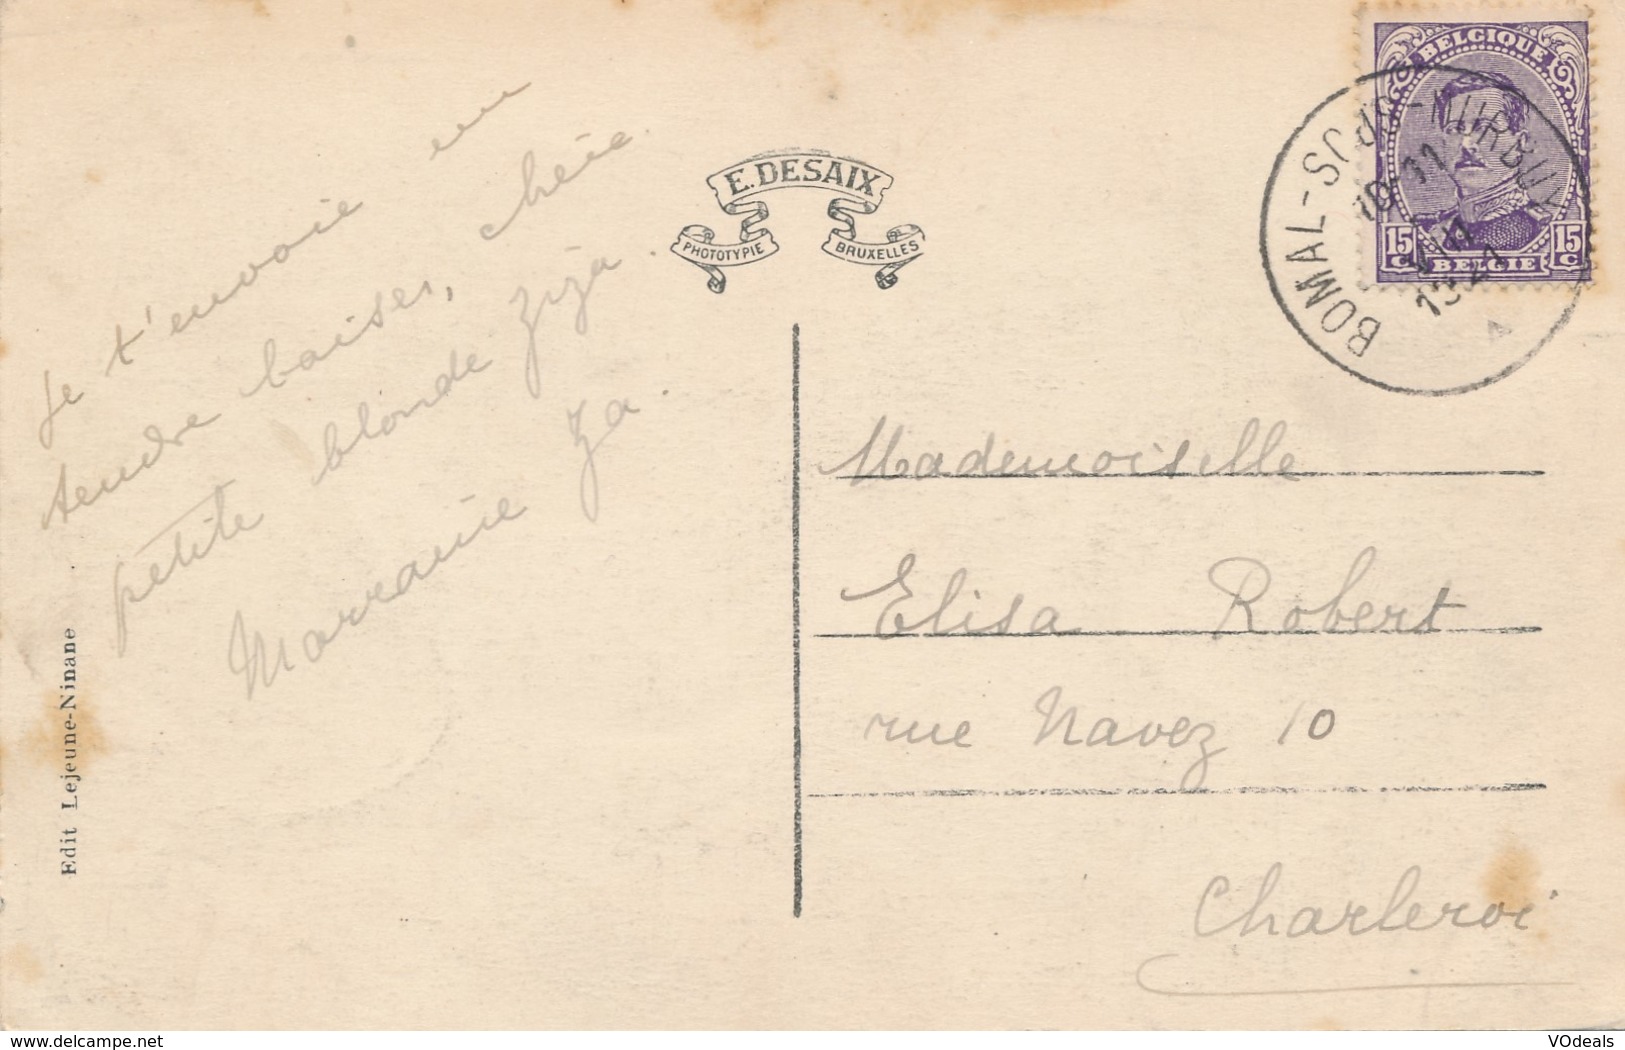 Je t'envoie un
tendre baiser, chérie
petite blonde ziza.
Marraine Za.
Edit Lejeune-Ninane
E. DESAIX
PHOTOTYPIE
BRUXELLES
BELGIQUE
15 C 15 C
BELGIE
BOMAL-
10-11
Mademoiselle
Elisa Robert
rue Navez 10
Charleroi
www.delcampe.net
VOdeals